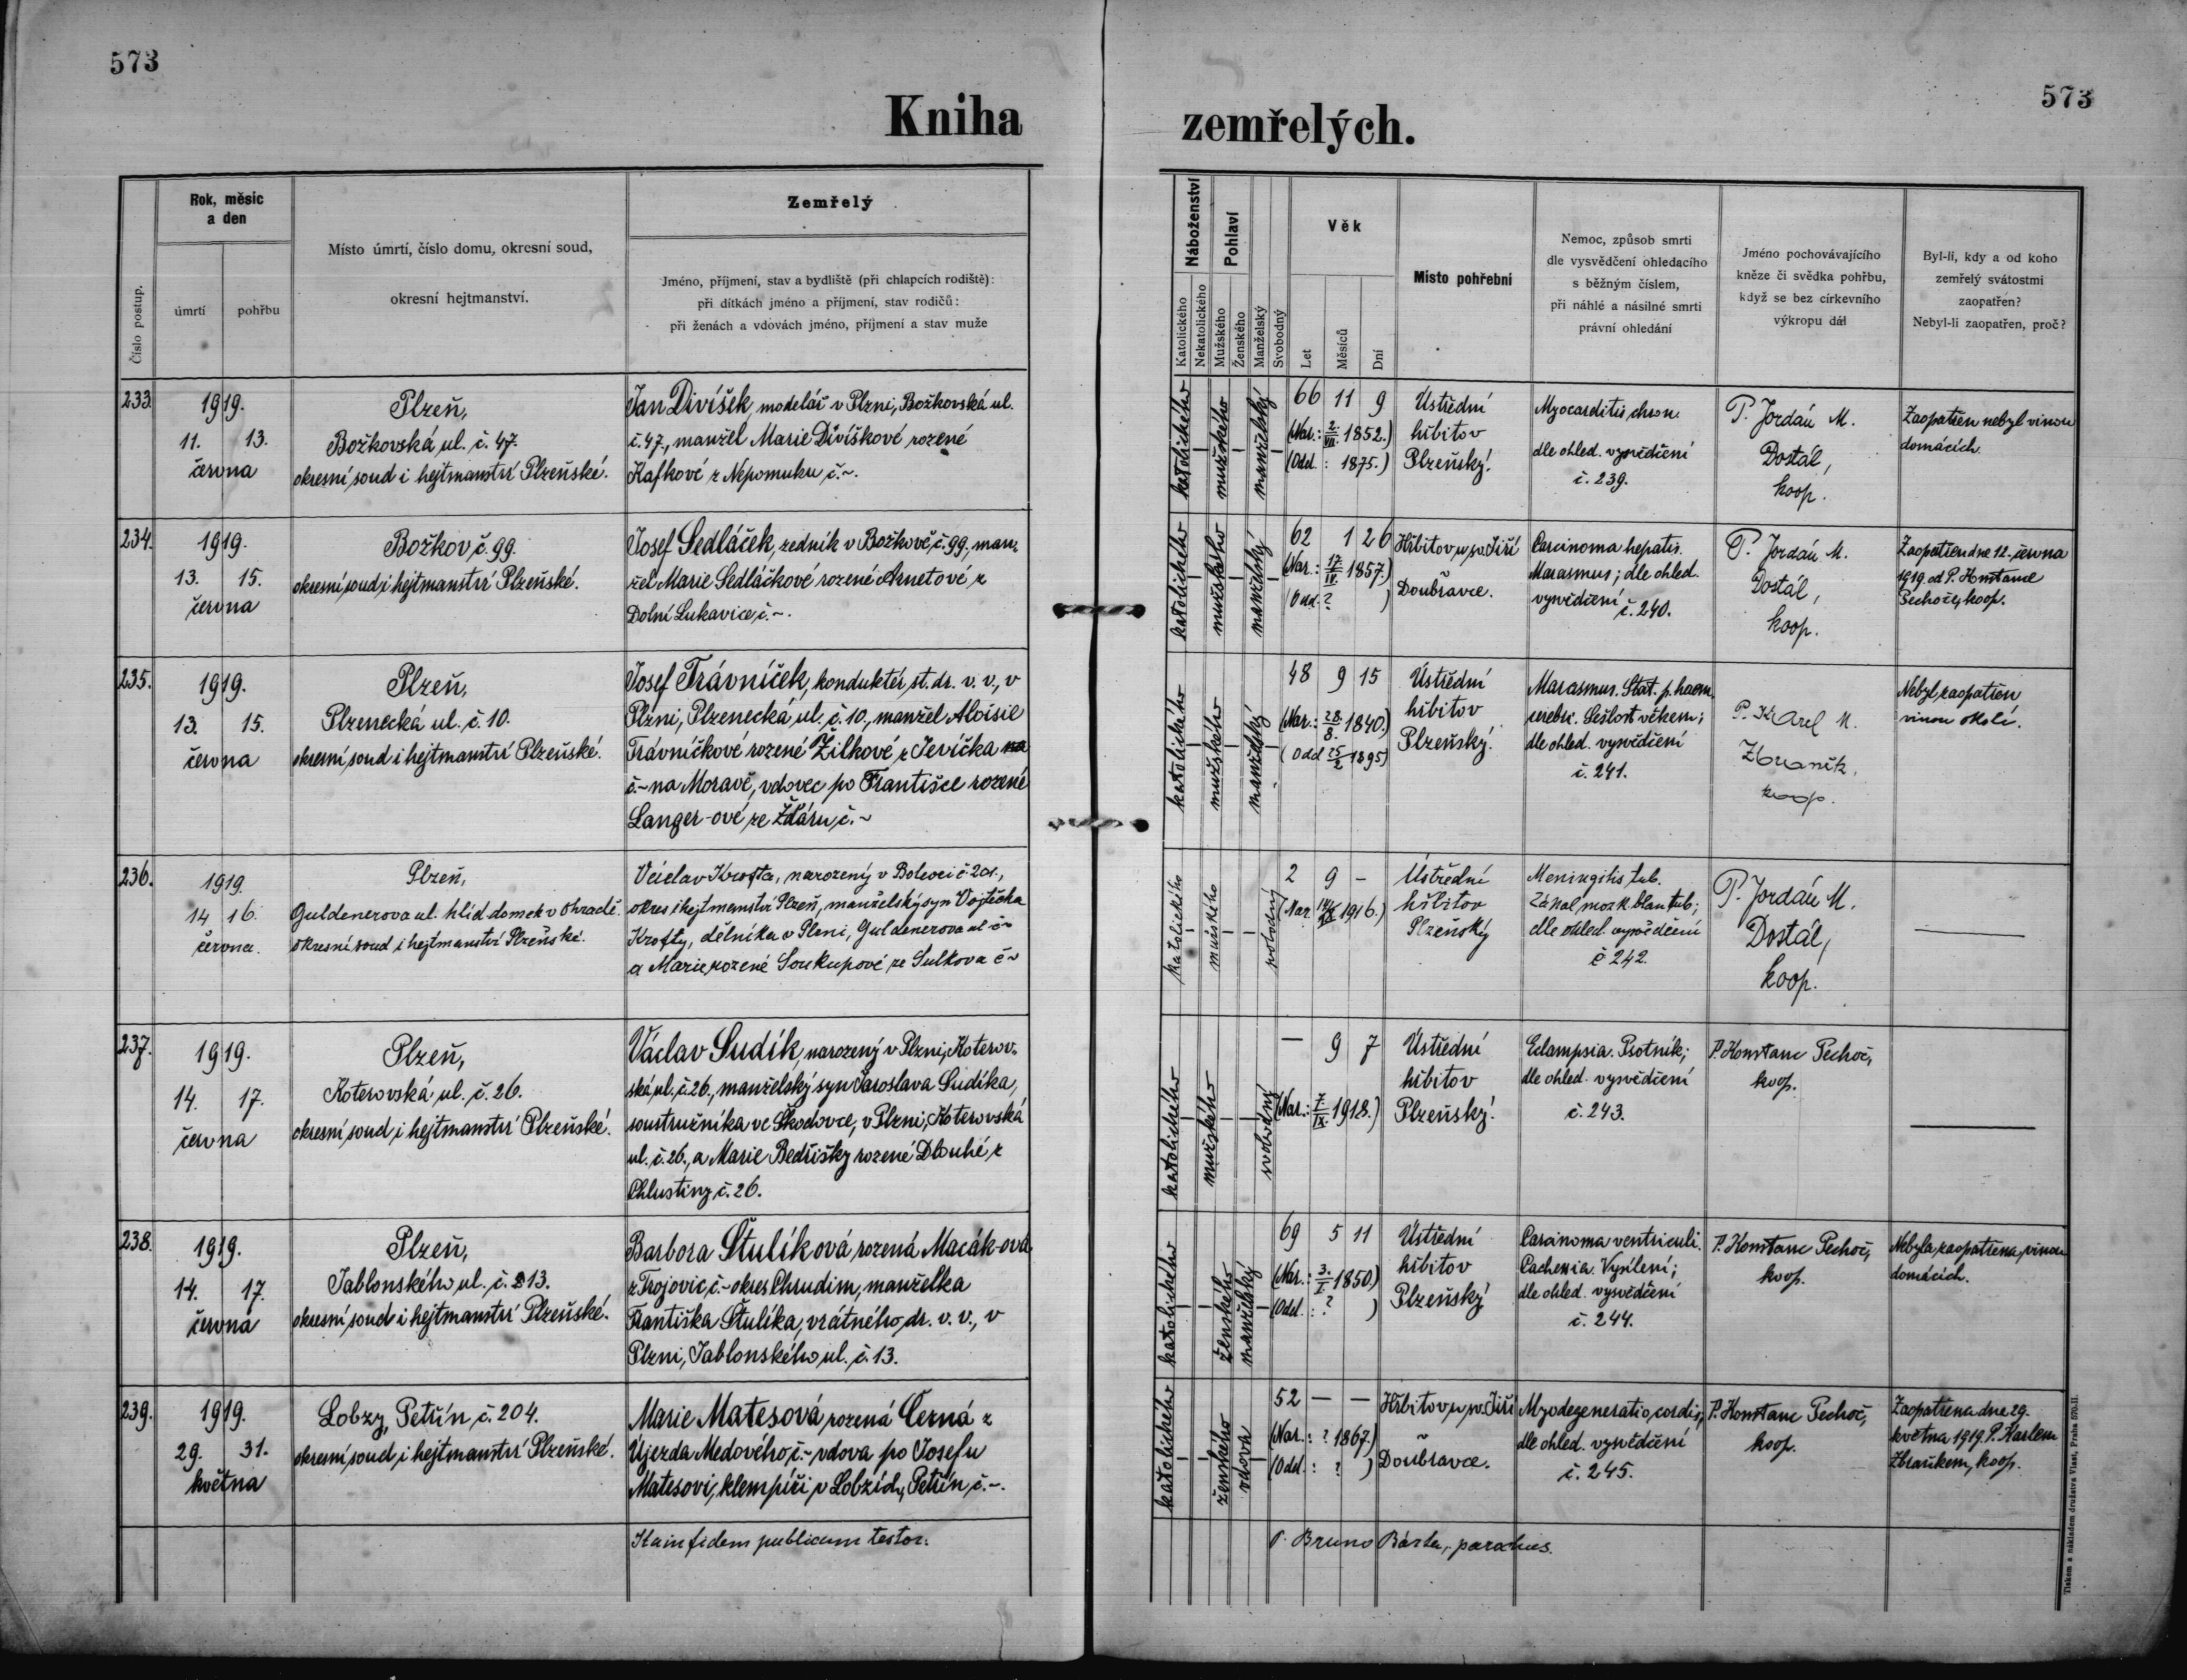 573
573
Kniha
zemřelých.
Číslo postup.
Rok, měsíc
a den
úmrtí
pohřbu
Místo úmrtí, číslo domu, okresní soud,
okresní hejtmanství.
Zemřelý
Jméno, příjmení, stav a bydliště (při chlapcích rodiště):
při dítkách jméno a příjmení, stav rodičů:
při ženách a vdovách jméno, příjmení a stav muže
Náboženství
Katolického
Nekatolického
Pohlaví
Mužského
Ženského
Manželský
Svobodný
Věk
Let
Měsíců
Dní
Místo pohřební
Nemoc, způsob smrti
dle vysvědčení ohledacího
s běžným číslem,
při náhlé a násilné smrti
právní ohledání
Jméno pochovávajícího
kněze či svědka pohřbu,
když se bez církevního
výkropu dál
Byl-li, kdy a od koho
zemřelý svátostmi
zaopatřen?
Nebyl-li zaopatřen, proč?
233.
1919.
11. 13.
června
Plzeň,
Božkovská ul. č. 47.
okresní soud i hejtmanství Plzeňské.
Jan Divíšek, modelář v Plzni, Božkovská ul.
č. 47., manžel Marie Divíškové rozené
Kafkové z Nepomuku č. ~.
katolického
mužského
manželský
66 11 9
(Nar.: 2./VII. 1852.)
(Odd.: 1875.)
Ústřední
hřbitov
Plzeňský.
Myocarditis chron.
dle ohled. vysvědčení
č. 239.
P. Jordán M.
Dostál,
koop.
Zaopatřen nebyl vinou
domácích.
234.
1919.
13. 15.
června
Božkov č. 99.
okresní soud i hejtmanství Plzeňské.
Josef Sedláček, zedník v Božkově č. 99, man-
žel Marie Sedláčkové rozené Arnetové z
Dolní Lukavice, č. ~.
katolického
mužského
manželský
62 1 26
(Nar.: 17./IV. 1857.)
(Odd. ? )
Hřbitov u sv. Jiří
Doubravce.
Carcinoma hepatis.
Marasmus; dle ohled.
vysvědčení č. 240.
P. Jordán M.
Dostál,
koop.
Zaopatřen dne 12. června
1919. od P. Konstance
Pechoče, koop.
235.
1919.
13. 15.
června
Plzeň,
Plzenecká ul. č. 10.
okresní soud i hejtmanství Plzeňské.
Josef Trávníček, konduktér st. dr. v. v., v
Plzni, Plzenecká ul. č. 10., manžel Aloisie
Trávníčkové rozené Žilkové z Jevíčka na
č. ~ na Moravě, vdovec po Františce rozené
Langer-ové ze Žďáru č. ~
katolického
mužského
manželský
48 9 15
(Nar.: 28./8. 1840.)
(Odd. 25/2 1895)
Ústřední
hřbitov
Plzeňský.
Marasmus. Stat. p. haem.
cerebr. Sešlost věkem;
dle ohled. vysvědčení
č. 241.
P. Karel M.
Zbraněk,
koop.
Nebyl zaopatřen
vinou okolí.
236.
1919.
14 16.
června.
Plzeň,
Guldenerova ul. hlíd. domek v Ohradě.
okresní soud i hejtmanství Plzeňské.
Václav Krofta, narozený v Bolevci č 201.,
okres i hejtmanství Plzeň, manželský syn Vojtěcha
Krofty, dělníka v Plzni, Guldenerova ul č ~
a Marie rozené Soukupové ze Sulkova č ~
katolického
mužského
svobodný
2 9 -
(Nar. 14/IX 1916.)
Ústřední
hřbitov
Plzeňský
Meningitis tub.
Zákal mozk. blan tub;
dle ohled. vysvědčení
č 242.
P. Jordán M.
Dostál,
koop.
237.
1919.
14. 17.
června
Plzeň,
Koterovská ul. č. 26.
okresní soud i hejtmanství Plzeňské.
Václav Sudík, narozený v Plzni, Koterov-
ská ul. č. 26., manželský syn Jaroslava Sudíka,
soustružníka ve Škodovce, v Plzni, Koterovská
ul. č. 26., a Marie Bedřišky rozené Dlouhé z
Chlustiny č. 26.
katolického
mužského
svobodný
— 9 7
(Nar.: 7./IX. 1918.)
Ústřední
hřbitov
Plzeňský.
Eclampsia. Psotník;
dle ohled. vysvědčení
č. 243.
P. Konstanc Pechoč,
koop.
238.
1919.
14. 17.
června
Plzeň,
Jablonského ul. č. 13.
okresní soud i hejtmanství Plzeňské.
Barbora Štulíková, rozená Macák-ová
z Trojovic, č. ~ okres Chrudim, manželka
Františka Štulíka, vrátného, dr. v. v., v
Plzni, Jablonského ul. č. 13.
katolického
ženského
manželský
69 5 11
(Nar.: 3./I. 1850.)
(Odd.: ? )
Ústřední
hřbitov
Plzeňský
Carcinoma ventriculi.
Cachexia. Vysílení;
dle ohled. vysvědčení
č. 244.
P. Konstanc Pechoč,
koop.
Nebyla zaopatřena vinou
domácích.
239.
1919.
29. 31.
května
Lobzy, Petřín č. 204.
okresní soud i hejtmanství Plzeňské.
Marie Matesová, rozená Černá z
Újezda Medového, č. ~ vdova po Josefu
Matesovi, klempíři v Lobzích, Petřín č. ~.
katolického
ženského
vdova
52 — —
(Nar.: ? 1867.)
(Odd.: ? )
Hřbitov u sv. Jiří
Doubravce.
Myodegeneratio cordis;
dle ohled. vysvědčení
č. 245.
P. Konstanc Pechoč,
koop.
Zaopatřena dne 29.
května 1919. P. Karlem
Zbraňkem, koop.
Ita in fidem publicam testor.
P. Bruno Bárta, parochus.
Tiskem a nákladem družstva Vlast, Praha 570-II.